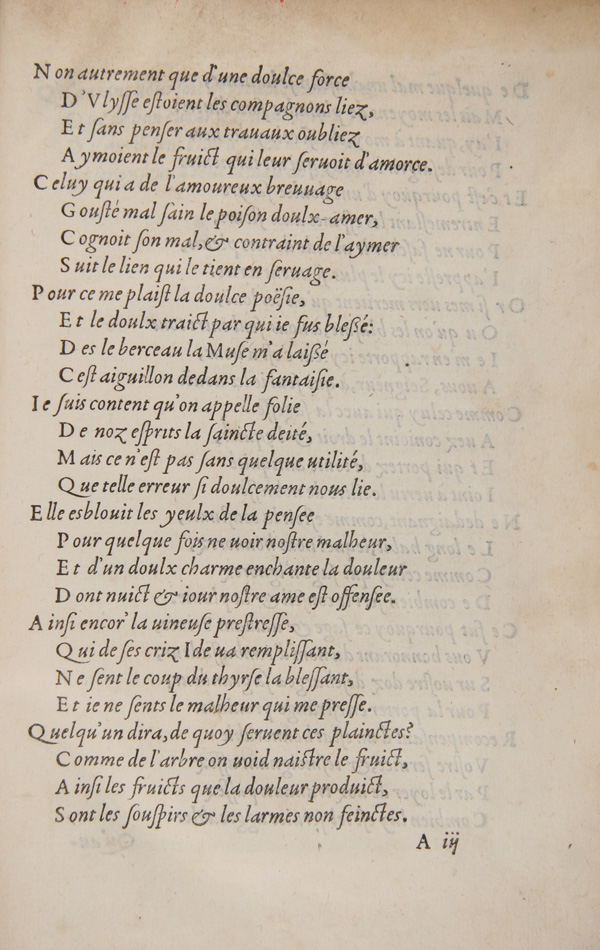 Non autrement que d'une doulce force
D'Vlyſſe eſtoient les compagnons liez,
Et ſans penſer aux trauaux oubliez
Aymoient le fruict qui leur ſeruoit d'amorce.
Celuy qui a de l'amoureux breuuage
Gouſté mal ſain le poiſon doulx-amer,
Cognoit ſon mal, & contraint de l'aymer
Suit le lien qui le tient en ſeruage.
Pour ce me plaiſt la doulce poëſie,
Et le doulx traict par qui ie fus bleßé:
Des le berceau la Muſe m'a laißé
Ceſt aiguillon dedans la fantaiſie.
Ie ſuis content qu'on appelle folie
De noz eſprits la ſaincte deité,
Mais ce n'eſt pas ſans quelque utilité,
Que telle erreur ſi doulcement nous lie.
Elle esblouit les yeulx de la penſee
Pour quelque fois ne uoir noſtre malheur,
Et d'un doulx charme enchante la douleur
Dont nuict & iour noſtre ame eſt offenſee.
Ainſi encor' la uineuſe preſtreſſe,
Qui de ſes criz Ide ua rempliſſant,
Ne ſent le coup du thyrſe la bleſſant,
Et ie ne ſents le malheur qui me preſſe.
Quelqu'un dira, de quoy ſeruent ces plainctes?
Comme de l'arbre on uoid naiſtre le fruict,
Ainſi les fruicts que la douleur produict,
Sont les ſouſpirs & les larmes non feinctes.
A iij